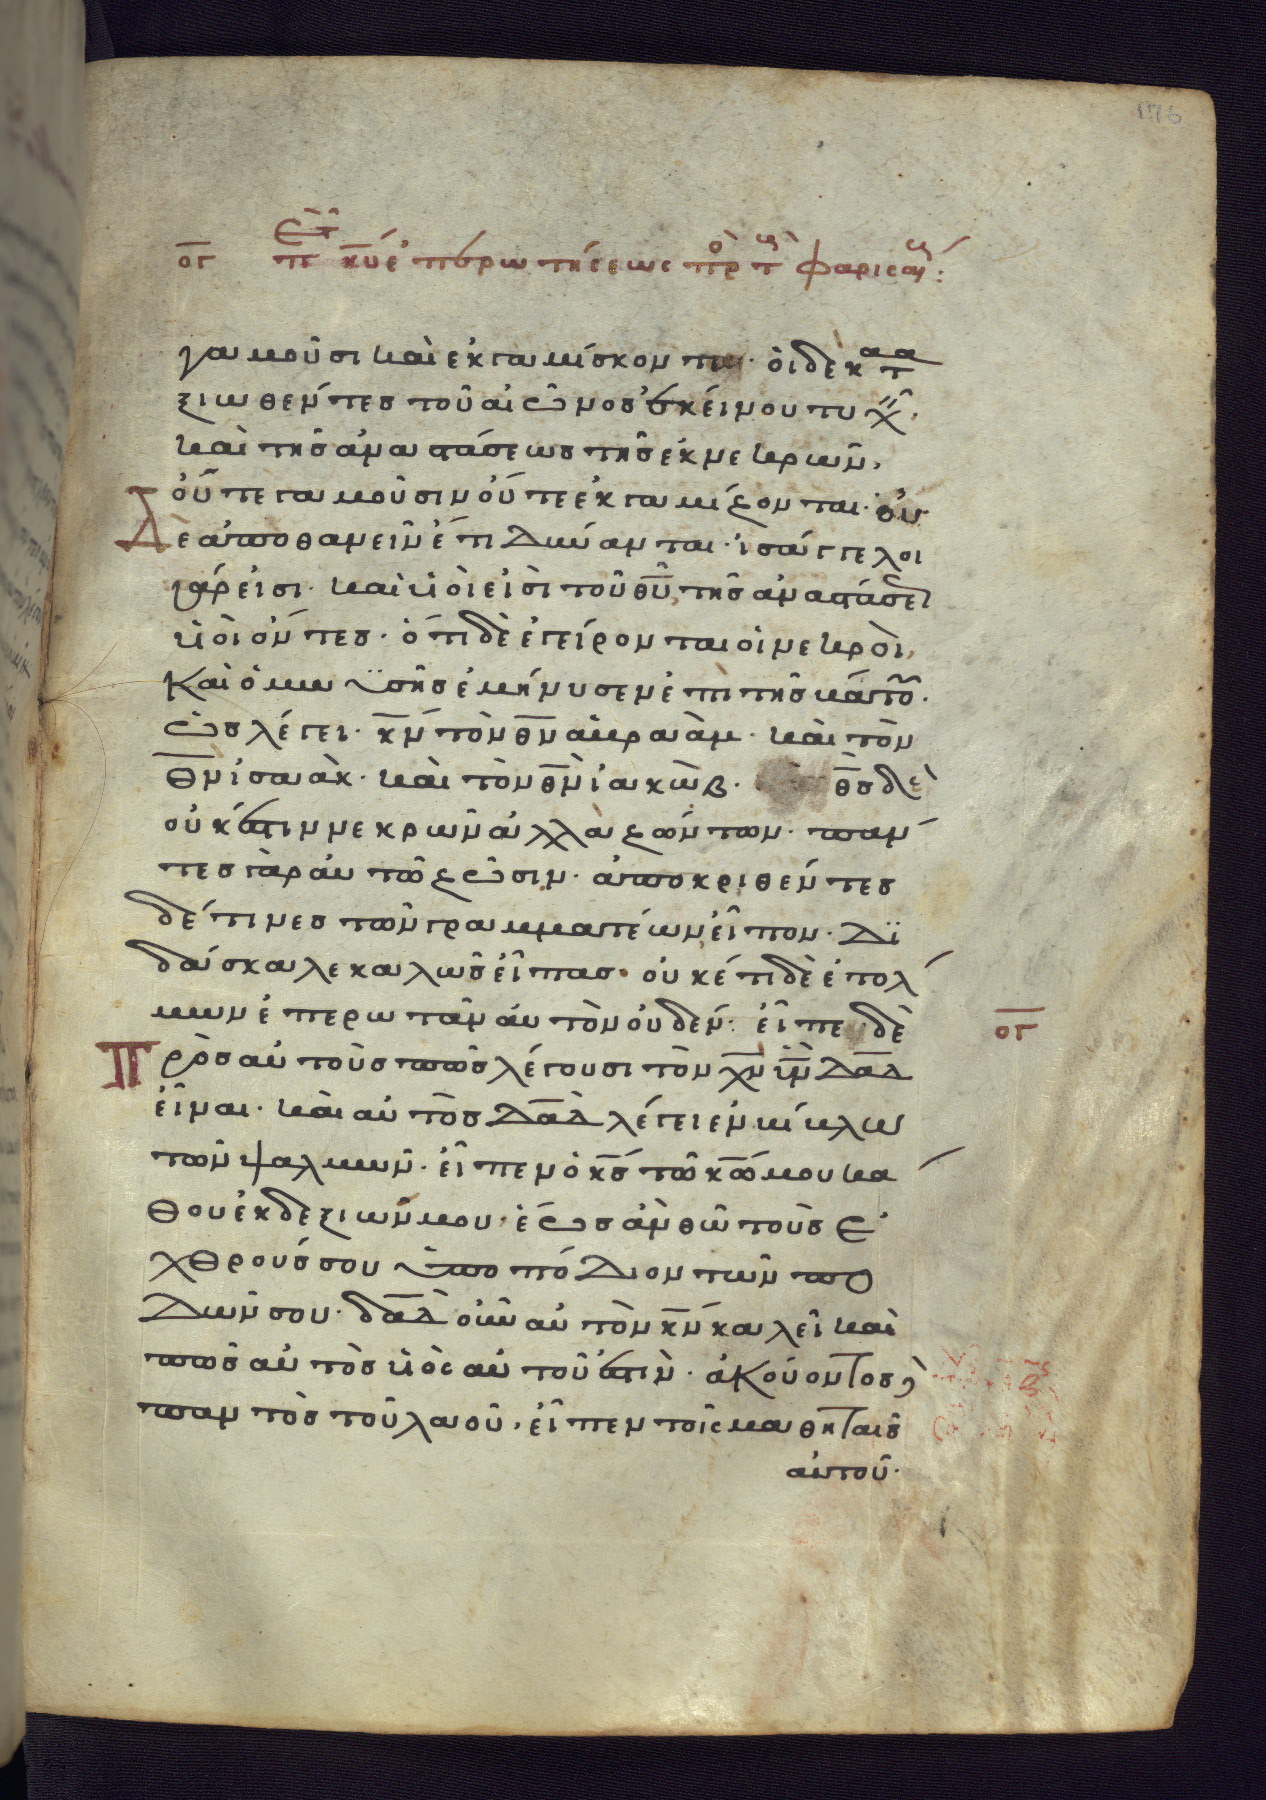 176
ογ περὶ τῆς τοῦ κυ ἐπερωτήσεως πρὸς τοὺς φαρισαίους:
γαμοῦσι καὶ ἐκγαμίσκονται· ὁι δε κατα
ξιωθέντες τοῦ αἰῶνος ἐκείνου τυχεῖν,
καὶ τῆς ἀναστάσεως τῆς ἐκ νεκρων,
οὔτε γαμοῦσιν οὔτε ἐκγαμίζονται· ὀυ
Δὲ ἀποθανεῖν ἔτι δύνανται· ἰσάγγελοι
γάρ εἰσι· καὶ υἱοὶ εἰσὶ τοῦ θυ, τῆς ἀναστάσεως
υἱοὶ ὄντες· ὅτι δὲ ἐγείρονται οἱ νεκροὶ,
Καὶ ὁ μωϋσῆς ἐμήνυσεν ἐπὶ τῆς βάτου·
ὡς λέγει· κν τὸν θν ἀβραάμ· καὶ τὸν
θν ἰσαάκ· καὶ τὸν θν ἰακώβ· θς δὲ
οὐκ ἔστιν νεκρῶν ἀλλα ζώντων· παν
τες γὰρ ἀυτῶ ζῶσιν· ἀποκριθέντες
δέ τινες τῶν γραμματέων εἶπον· Δϊ
δάσκαλε καλῶς εἶπας· οὐκέτι δὲ ἐτόλ
μων ἐπερωτᾶν ἀυτὸν ὀυδέν· εἶπε δὲ
ογ
Πρὸς αὐτοὺς πῶς λέγουσι τὸν χν υν δαδ
εἶναι· καὶ αὐτὸς δαδ λέγει ἐν βίβλω
τῶν ψαλμων· εἶπεν ὁ κς τῶ κω μου κα
θου ἐκ δεξιων μου· ἕως ἂν θῶ τοὺς ἐ
χθρούς σου ὑποπόδιον τῶν πο
δων σου· δαδ οὖν αὐτὸν κν καλεῖ καὶ
πῶς αὐτὸς υἱὸς αὐτοῦ ἐστιν· ἀκούοντος δὲ
παντὸς τοῦ λαοῦ, εἶπεν τοῖς μαθηταῖς
αὐτοῦ·